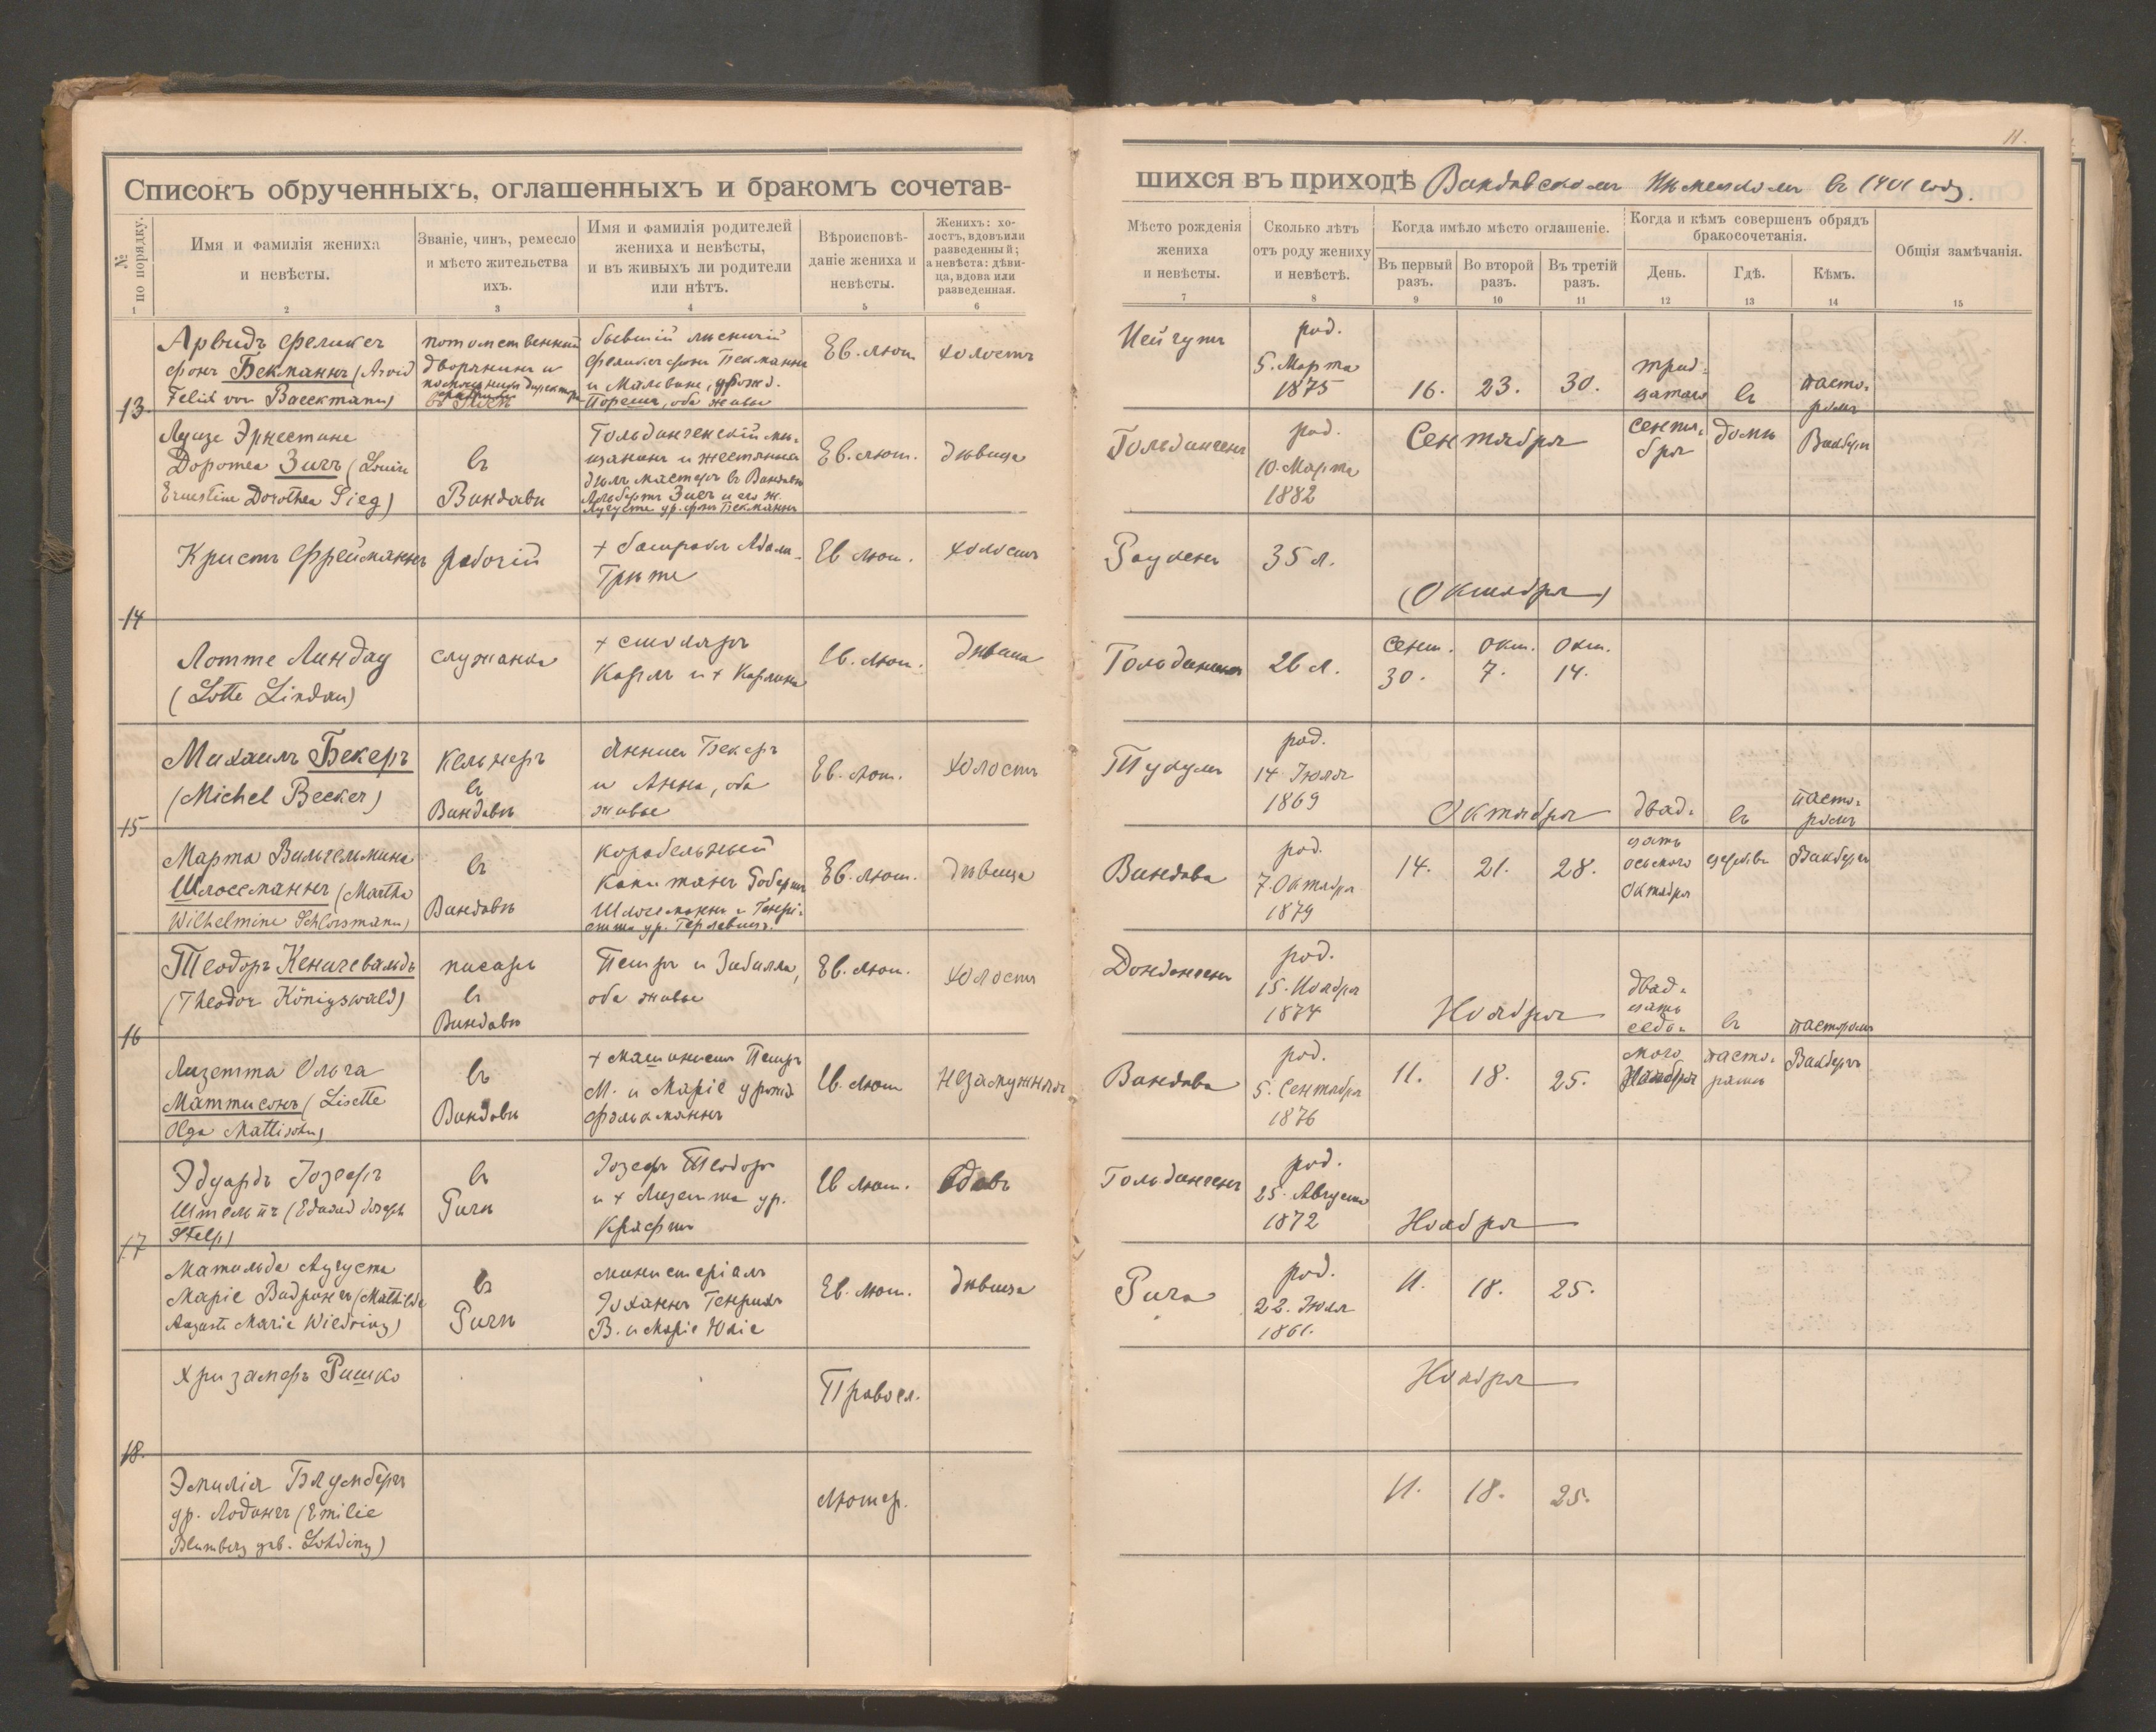 11.
Списокъ обрученныхъ, оглашенныхъ и бракомъ сочетав-
шихся въ приходѣ Виндавскомъ Нѣмецкомъ въ 1901 году.
№ по порядку.
Имя и фамилія жениха
и невѣсты.
Званіе, чинъ, ремесло
и мѣсто жительства
ихъ.
Имя и фамилія родителей
жениха и невѣсты,
и въ живыхъ ли родители
или нѣтъ.
Вѣроисповѣ-
даніе жениха и
невѣсты.
Женихъ: хо-
лостъ, вдовъ или
разведенный;
а невѣста: дѣви-
ца, вдова или
разведенная.
Мѣсто рожденія
жениха
и невѣсты.
Сколько лѣтъ
отъ роду жениху
и невѣстѣ.
Когда имѣло мѣсто оглашеніе.
Въ первый
разъ.
Во второй
разъ.
Въ третій
разъ.
Когда и кѣмъ совершенъ обрядъ
бракосочетанія.
День.
Гдѣ.
Кѣмъ.
Общія замѣчанія.
1 2 3 4 5 6 7 8 9 10 11 12 13 14 15
13.
Арвидъ Феликсъ
фонъ Бекманнъ (Arvid
Felix von Baeckmann)
потомственный
дворянинъ и
бывшій лѣсничій
Феликсъ фонъ Бекманнъ
и Мальвине,
оба живы
Ев. лют.
холостъ
род.
5. Марта
1875
16. 23. 30.
трид-
цатаго
въ
пасто-
ромъ
Луизе Эрнестине
Доротеа Зигъ (Louise
Ernestine Dorothea Sieg)
въ
Виндавѣ
Гольдингенскій мѣ-
щанинъ и жестяныхъ
дѣлъ мастеръ въ Виндавѣ
Альбертъ Зигъ и его ж.
Аугусте ур. фонъ Бекманнъ
Ев. лют.
дѣвица
Гольдингенъ
род.
10. Марта
1882
Сентября
сентя-
бря
домѣ
Вакбергъ
14
Кристъ Фрейманнъ
рабочій
Грѣте
Ев. лют.
холостъ
35 л.
(Октября)
Лотте Линдау
(Lotte Lindau)
служанка
+ столяръ
Карлъ и + Каролина
Ев. лют.
дѣвица
Гольдингенъ
26 л.
Сент. Окт. Окт.
30. 7. 14.
15
Михаилъ Бекеръ
(Michel Becker)
кельнеръ
въ
Виндавѣ
Янней Бекеръ
и Анна, оба
живы
Ев. лют.
холостъ
Тукумъ
род.
14 Іюля
1869
Октября
двад-
въ
пасто-
ромъ
Марта Вильгельмина
Шлоссманнъ (Martha
Wilhelmine Schlossmann)
въ
Виндавѣ
корабельный
капитанъ Робертъ
Шлоссманнъ и Генрі-
етта ур. Герлевицъ.
Ев. лют.
дѣвица
Виндава
род.
7. Октября
1879
14. 21. 28.
цать
осьмого
Октября
церкви
Вакбергъ
16
Теодоръ Кенигсвальдъ
(Theodor Königswald)
писарь
въ
Виндавѣ
Петръ и Забилла,
оба живы
Ев. лют.
холостъ
Донданге­нъ
род.
15. Ноября
1874
Ноября
двад-
цать
седь-
въ
пасторомъ
Лизетта Ольга
Маттисонъ (Lisette
Olga Mattisohn)
въ
Виндавѣ
+ машинистъ Петръ
М. и Маріе урожд.
Фолькманнъ
Ев. лют
незамужняя
Виндава
род.
5. Сентября
1876
11. 18. 25.
мого
Ноября
пасто-
ратѣ
Вакбергъ
17
Эдуардъ Іозефъ
Штельпъ (Eduard Joseph
Stelp)
въ
Ригѣ
Іозефъ Теодоръ
и + Лизетта ур.
Крафтъ
Ев. лют.
вдовъ
Гольдингенъ
род.
25. Августа
1872
Ноября
Матильда Аугуста
Маріе Видрингъ (Mathilde
Auguste Marie Wiedring)
въ
Ригѣ
министеріалъ
Іоханнъ Генрихъ
В. и Маріе Юліе
Ев. лют.
дѣвица
Рига
род.
22. Іюля
1861.
11. 18. 25.
18.
Хризамеръ Ришко
Правосл.
Ноября
Эмилія Блумбергъ
ур. Лодингъ (Emilie
Blumberg geb. Lohding)
Лютер.
11. 18. 25.